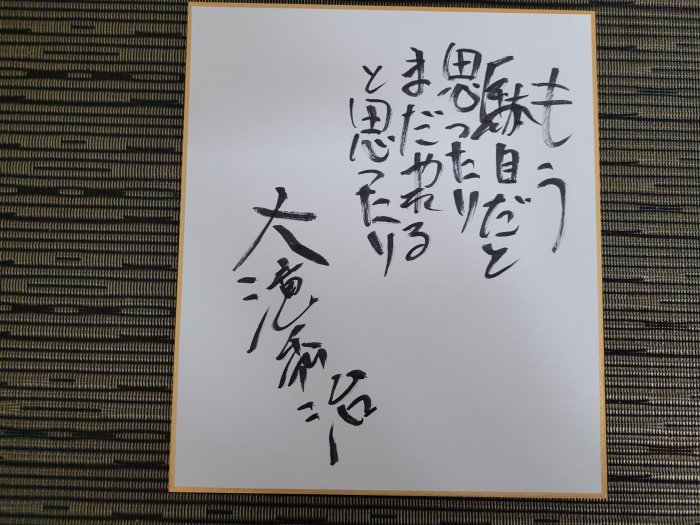 もう
駄目だと
思ったり
まだやれる
と思ったり
大滝秀治